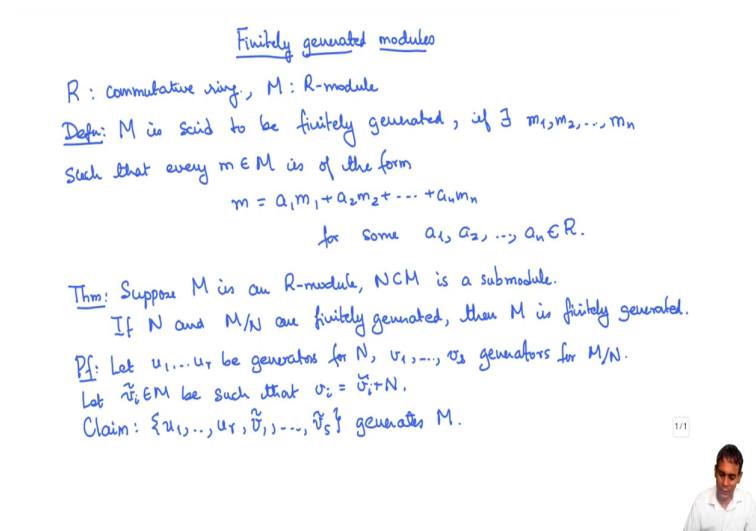 Finitely generated modules
R : commutative ring, M : R-module
Defn: M is said to be finitely generated, if ∃ m₁, m₂, ..., mₙ
such that every m ∈ M is of the form
m = a₁m₁ + a₂m₂ + ··· + aₙmₙ
for some a₁, a₂, ..., aₙ ∈ R.
Thm: Suppose M is an R-module, N ⊂ M is a submodule.
If N and M/N are finitely generated, then M is finitely generated.
Pf: Let u₁ ... uᵣ be generators for N, v₁, ..., vₛ generators for M/N.
Let ṽᵢ ∈ M be such that vᵢ = ṽᵢ + N.
Claim: {u₁, .., uᵣ, ṽ₁, ..., ṽₛ} generates M.
1/1